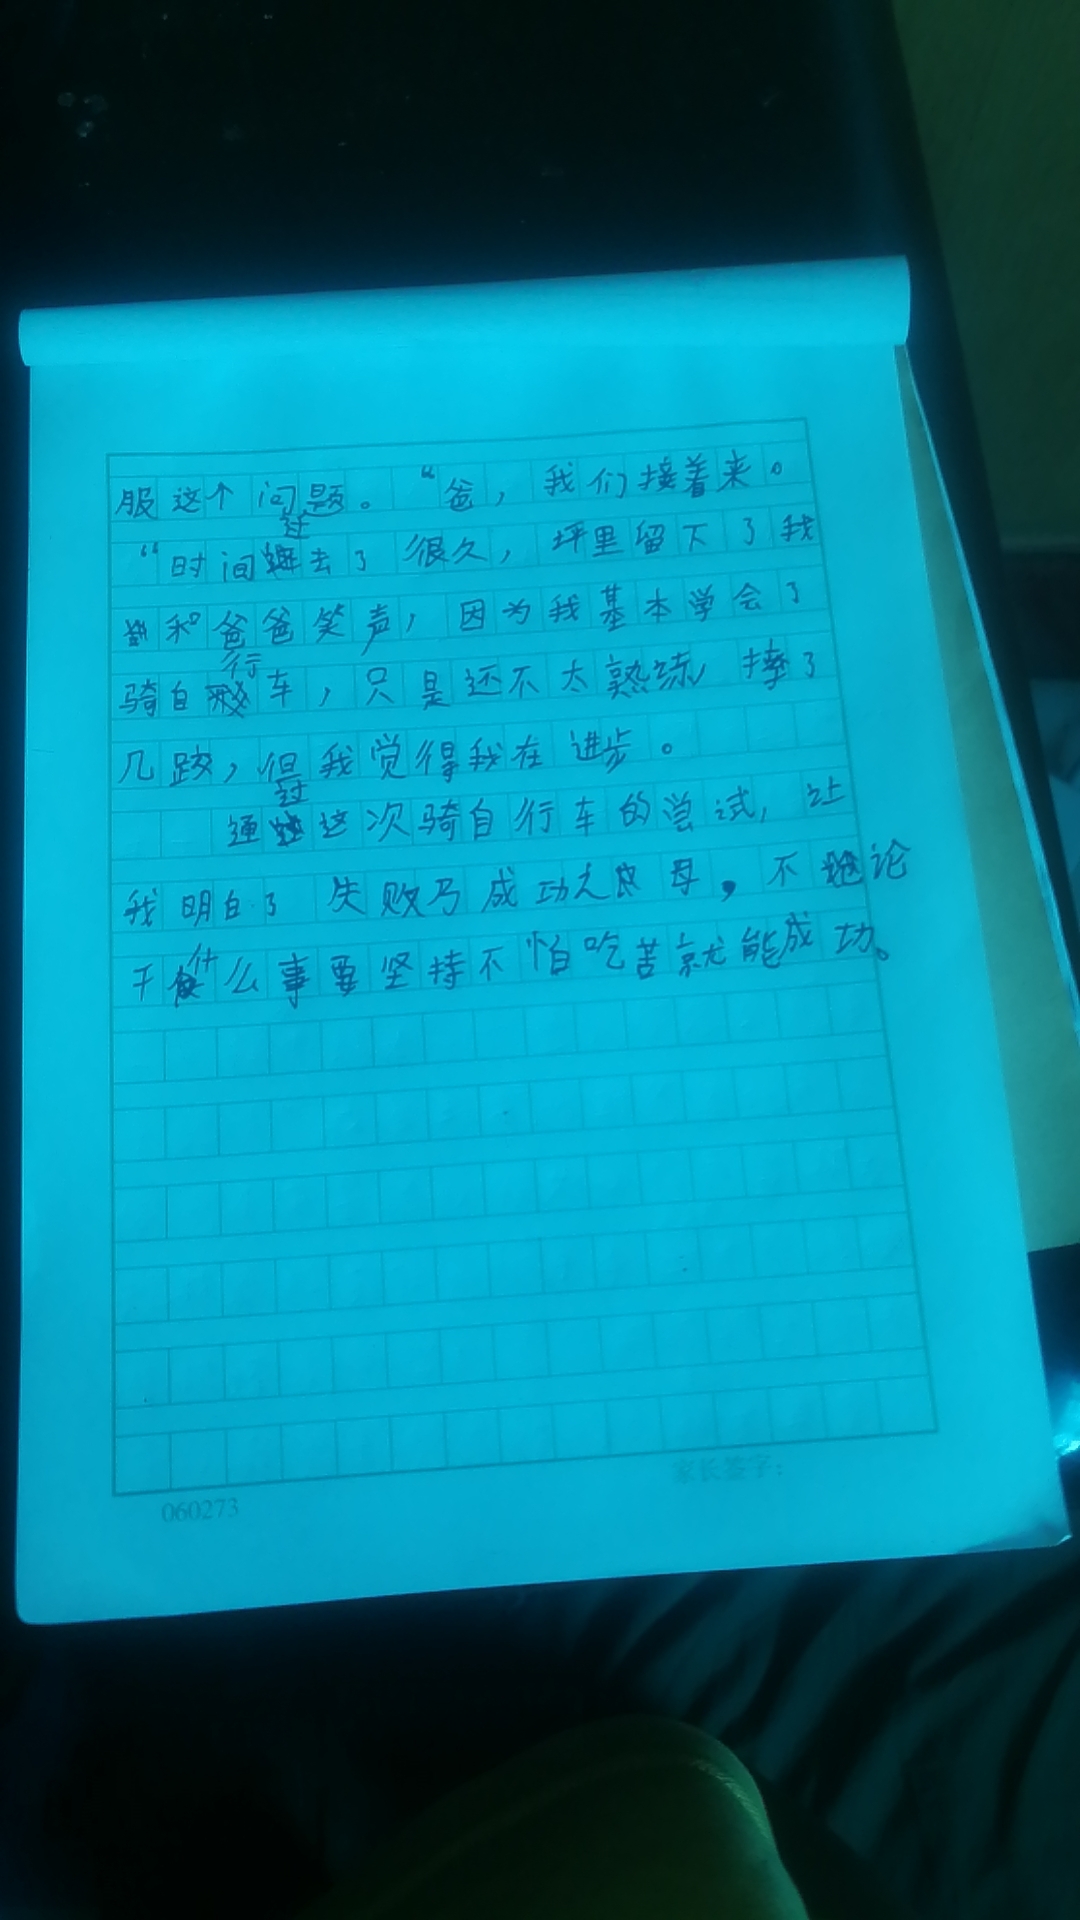 服这个问题。“爸，我们接着来。
“时间过去了很久，坪里留下了我
和爸爸笑声，因为我基本学会了
骑自行车，只是还不太熟练，摔了
几跤，但我觉得我在进步。
通过这次骑自行车的尝试，让
我明白了失败乃成功之母，不论
干什么事要坚持不怕吃苦就能成功。
家长签字：
060273